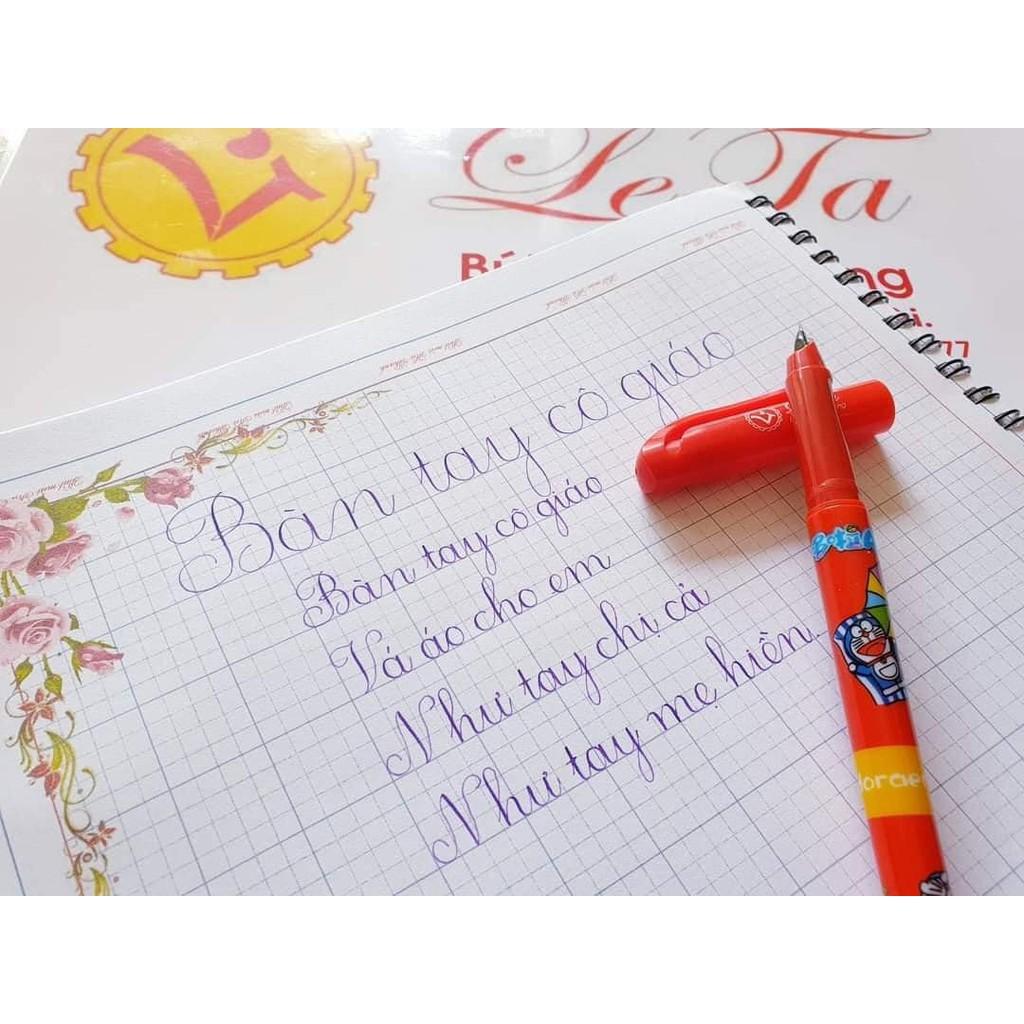 Le Ta
ng
77
Bàn tay cô giáo
Bàn tay cô giáo
Vá áo cho em
Như tay chị cả
Như tay mẹ hiền.